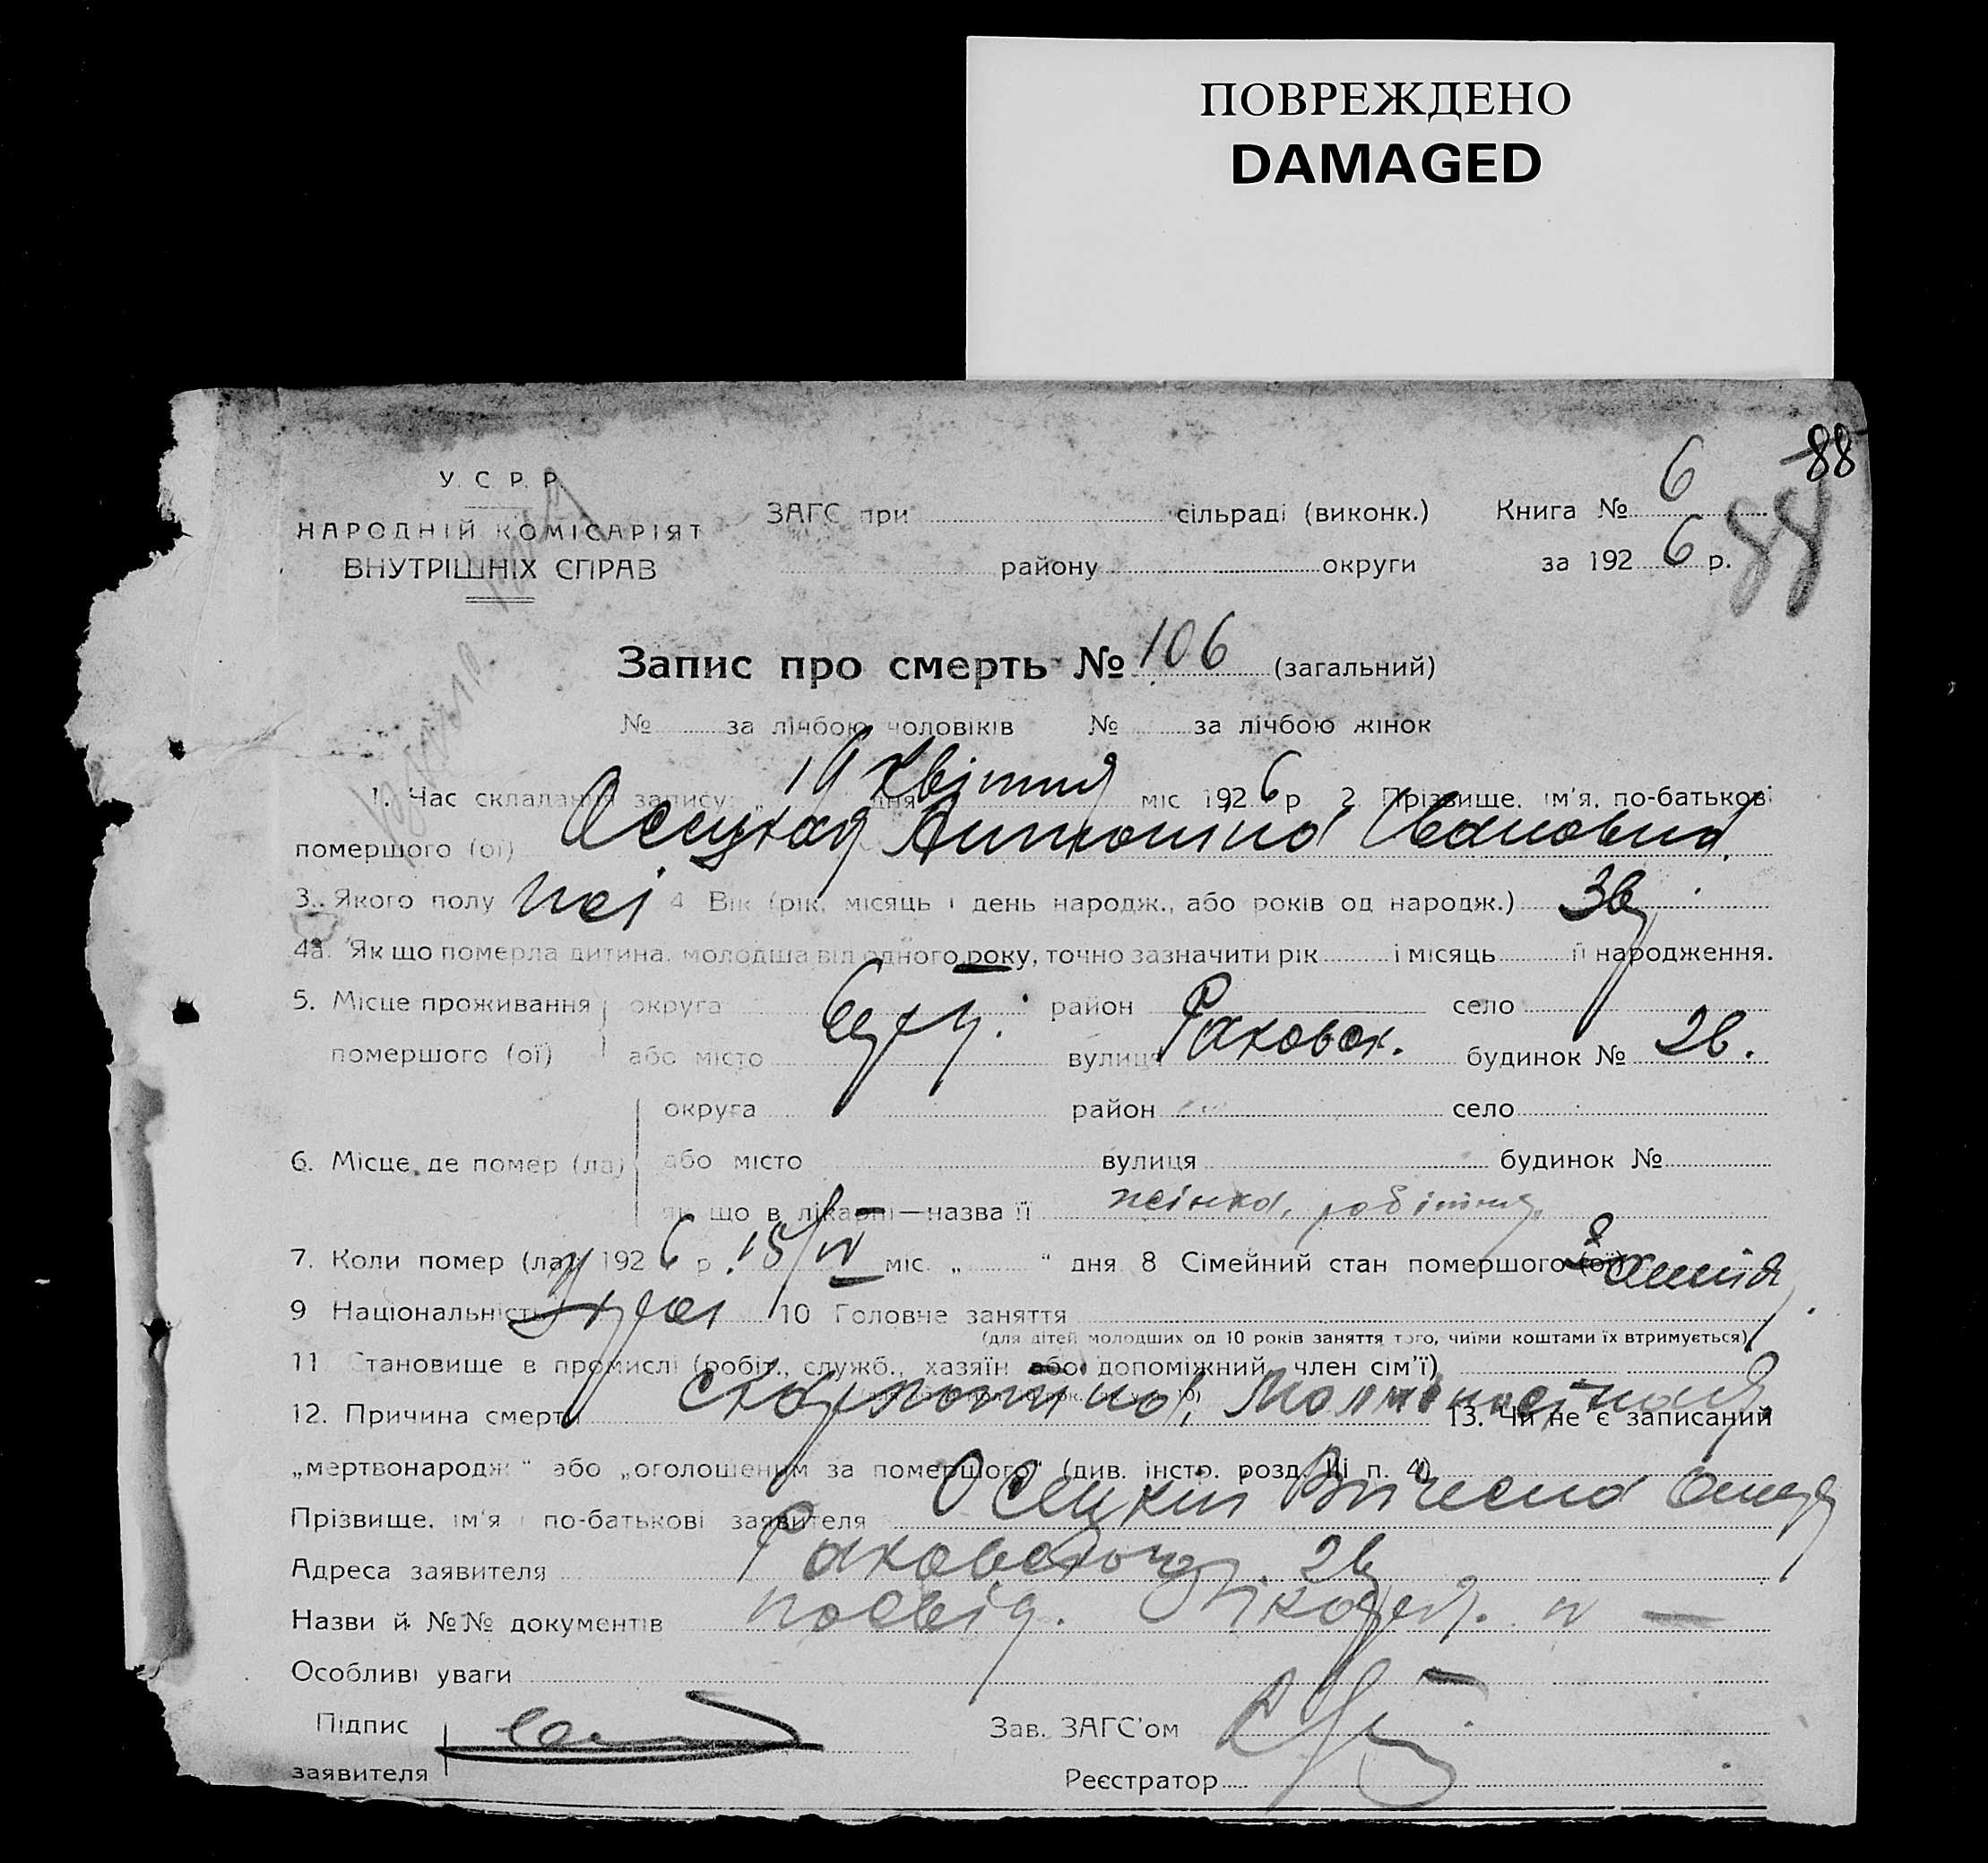 ПОВРЕЖДЕНО
DAMAGED
88
У. С. Р. Р.
НАРОДНІЙ КОМІСАРІЯТ
ВНУТРІШНІХ СПРАВ
ЗАГС при сільраді (виконк.) Книга № 6
району округи за 1926 р.
88
Запис про смерть № 106 (загальний)
№ за лічбою чоловіків № за лічбою жінок
1. Час складання запису: „ 19 дня Квітня міс 1926 р. 2 Прізвище, ім'я, по-батькові
помершого (ої) Осецкая Антоніна Івановна
3. Якого полу жі 4 Вік (рік, місяць і день народж., або років од народж.)
4а. Як що померла дитина, молодша від одного року, точно зазначити рік і місяць її народження.
5. Місце проживання округа район село
помершого (ої) або місто вулиця Раковск. будинок №
округа район село
6. Місце, де помер (ла) або місто вулиця будинок №
як що в лікарні—назва її жінка,
7. Коли помер (ла) 1926 р. 15/IV міс. „ “ дня 8 Сімейний стан помершого (ої)
9 Національність Укра 10 Головне заняття
(для дітей молодших од 10 років заняття того, чиїми коштами їх втримується)
11 Становище в промислі (робіт., служб., хазяїн або допоміжний член сім'ї)
12. Причина смерти Скарлатина, 13. Чи не є записаний
„мертвонародж.“ або „оголошеним за померлого“ (див. інстр. розд. ІІІ п. 4)
Прізвище, ім'я і по-батькові заявителя Осецкій
Адреса заявителя Раковского
Назви й №№ документів посвід. лікаря.
Особливі уваги
Підпис Зав. ЗАГС'ом
заявителя Реєстратор